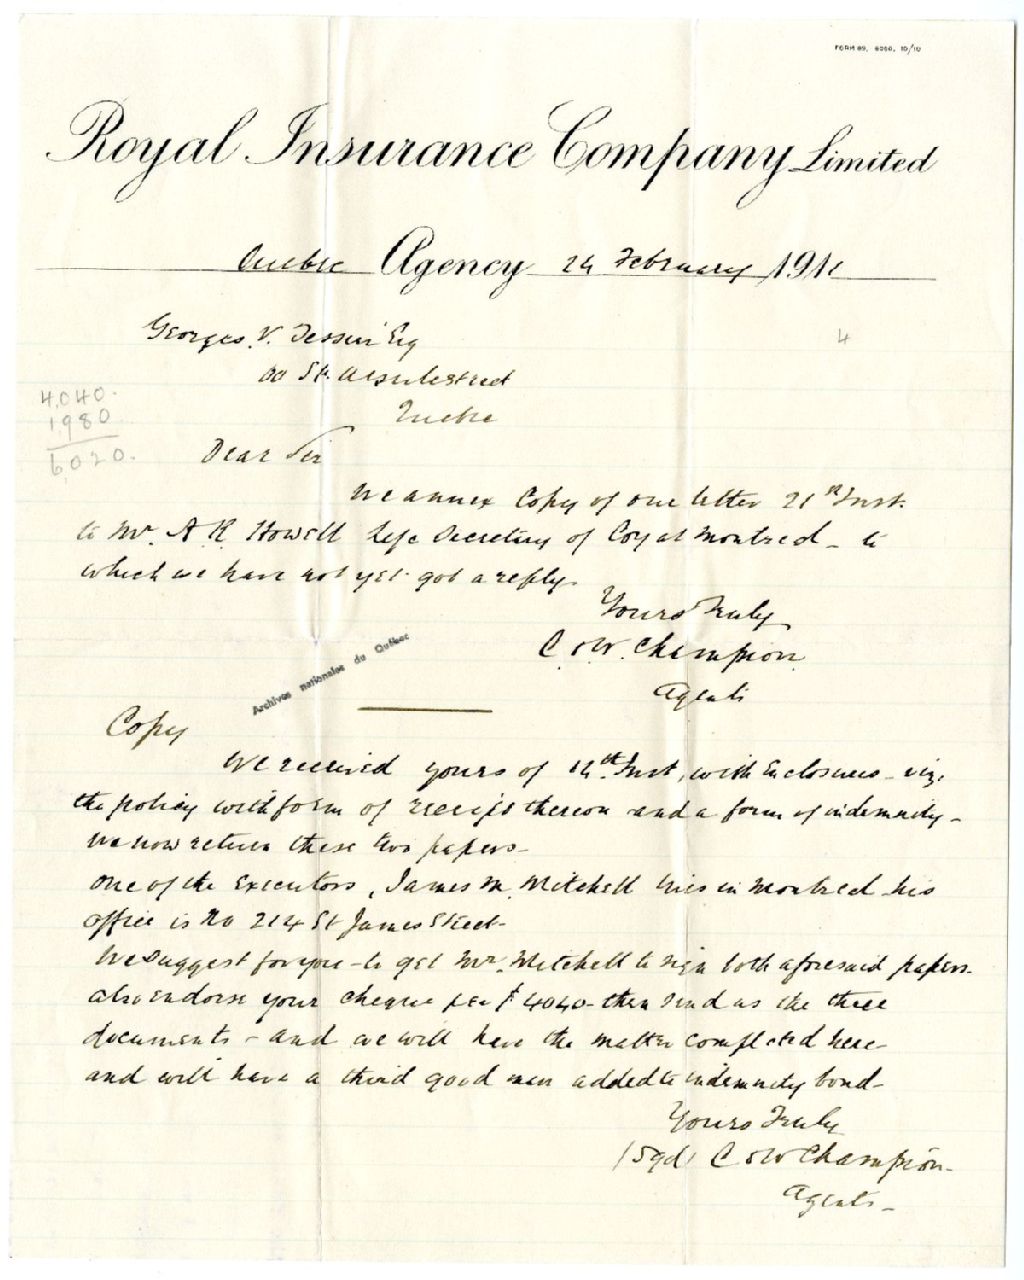 FORM 89, 6000, 10/10
Royal Insurance Company Limited
Quebec Agency 24 February 1911
Georges V. Tessier Esq
St. Ursule street
Quebec
4
4,040.
1,980
6,020.
Dear Sir
We annex Copy of our letter 21st Inst.
to Mr. A R Howell Life Secretary of Royal Montreal - to
which we have not yet got a reply.
Yours Truly
C & W. Champion
Agents
Archives nationales du Québec
Copy
We received yours of 14th Inst, with Enclosures - viz,
the policy with form of receipt thereon and a form of indemnity -
We now return these two papers -
One of the Executors, James M. Mitchell lives in Montreal his
office is No 214 St James Street -
We suggest for you - to get Mr. Mitchell to sign both aforesaid papers
also endorse your cheque for $ 4040 - then send us the three
documents - and we will have the matter completed here -
and will have a third good man added to indemnity bond -
Yours Truly
(Sgd) C & W Champion -
Agents -